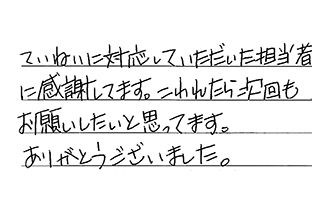 ていねいに対応していただいた担当者
に感謝してます。こわれたら次回も
お願いしたいと思ってます。
ありがとうございました。